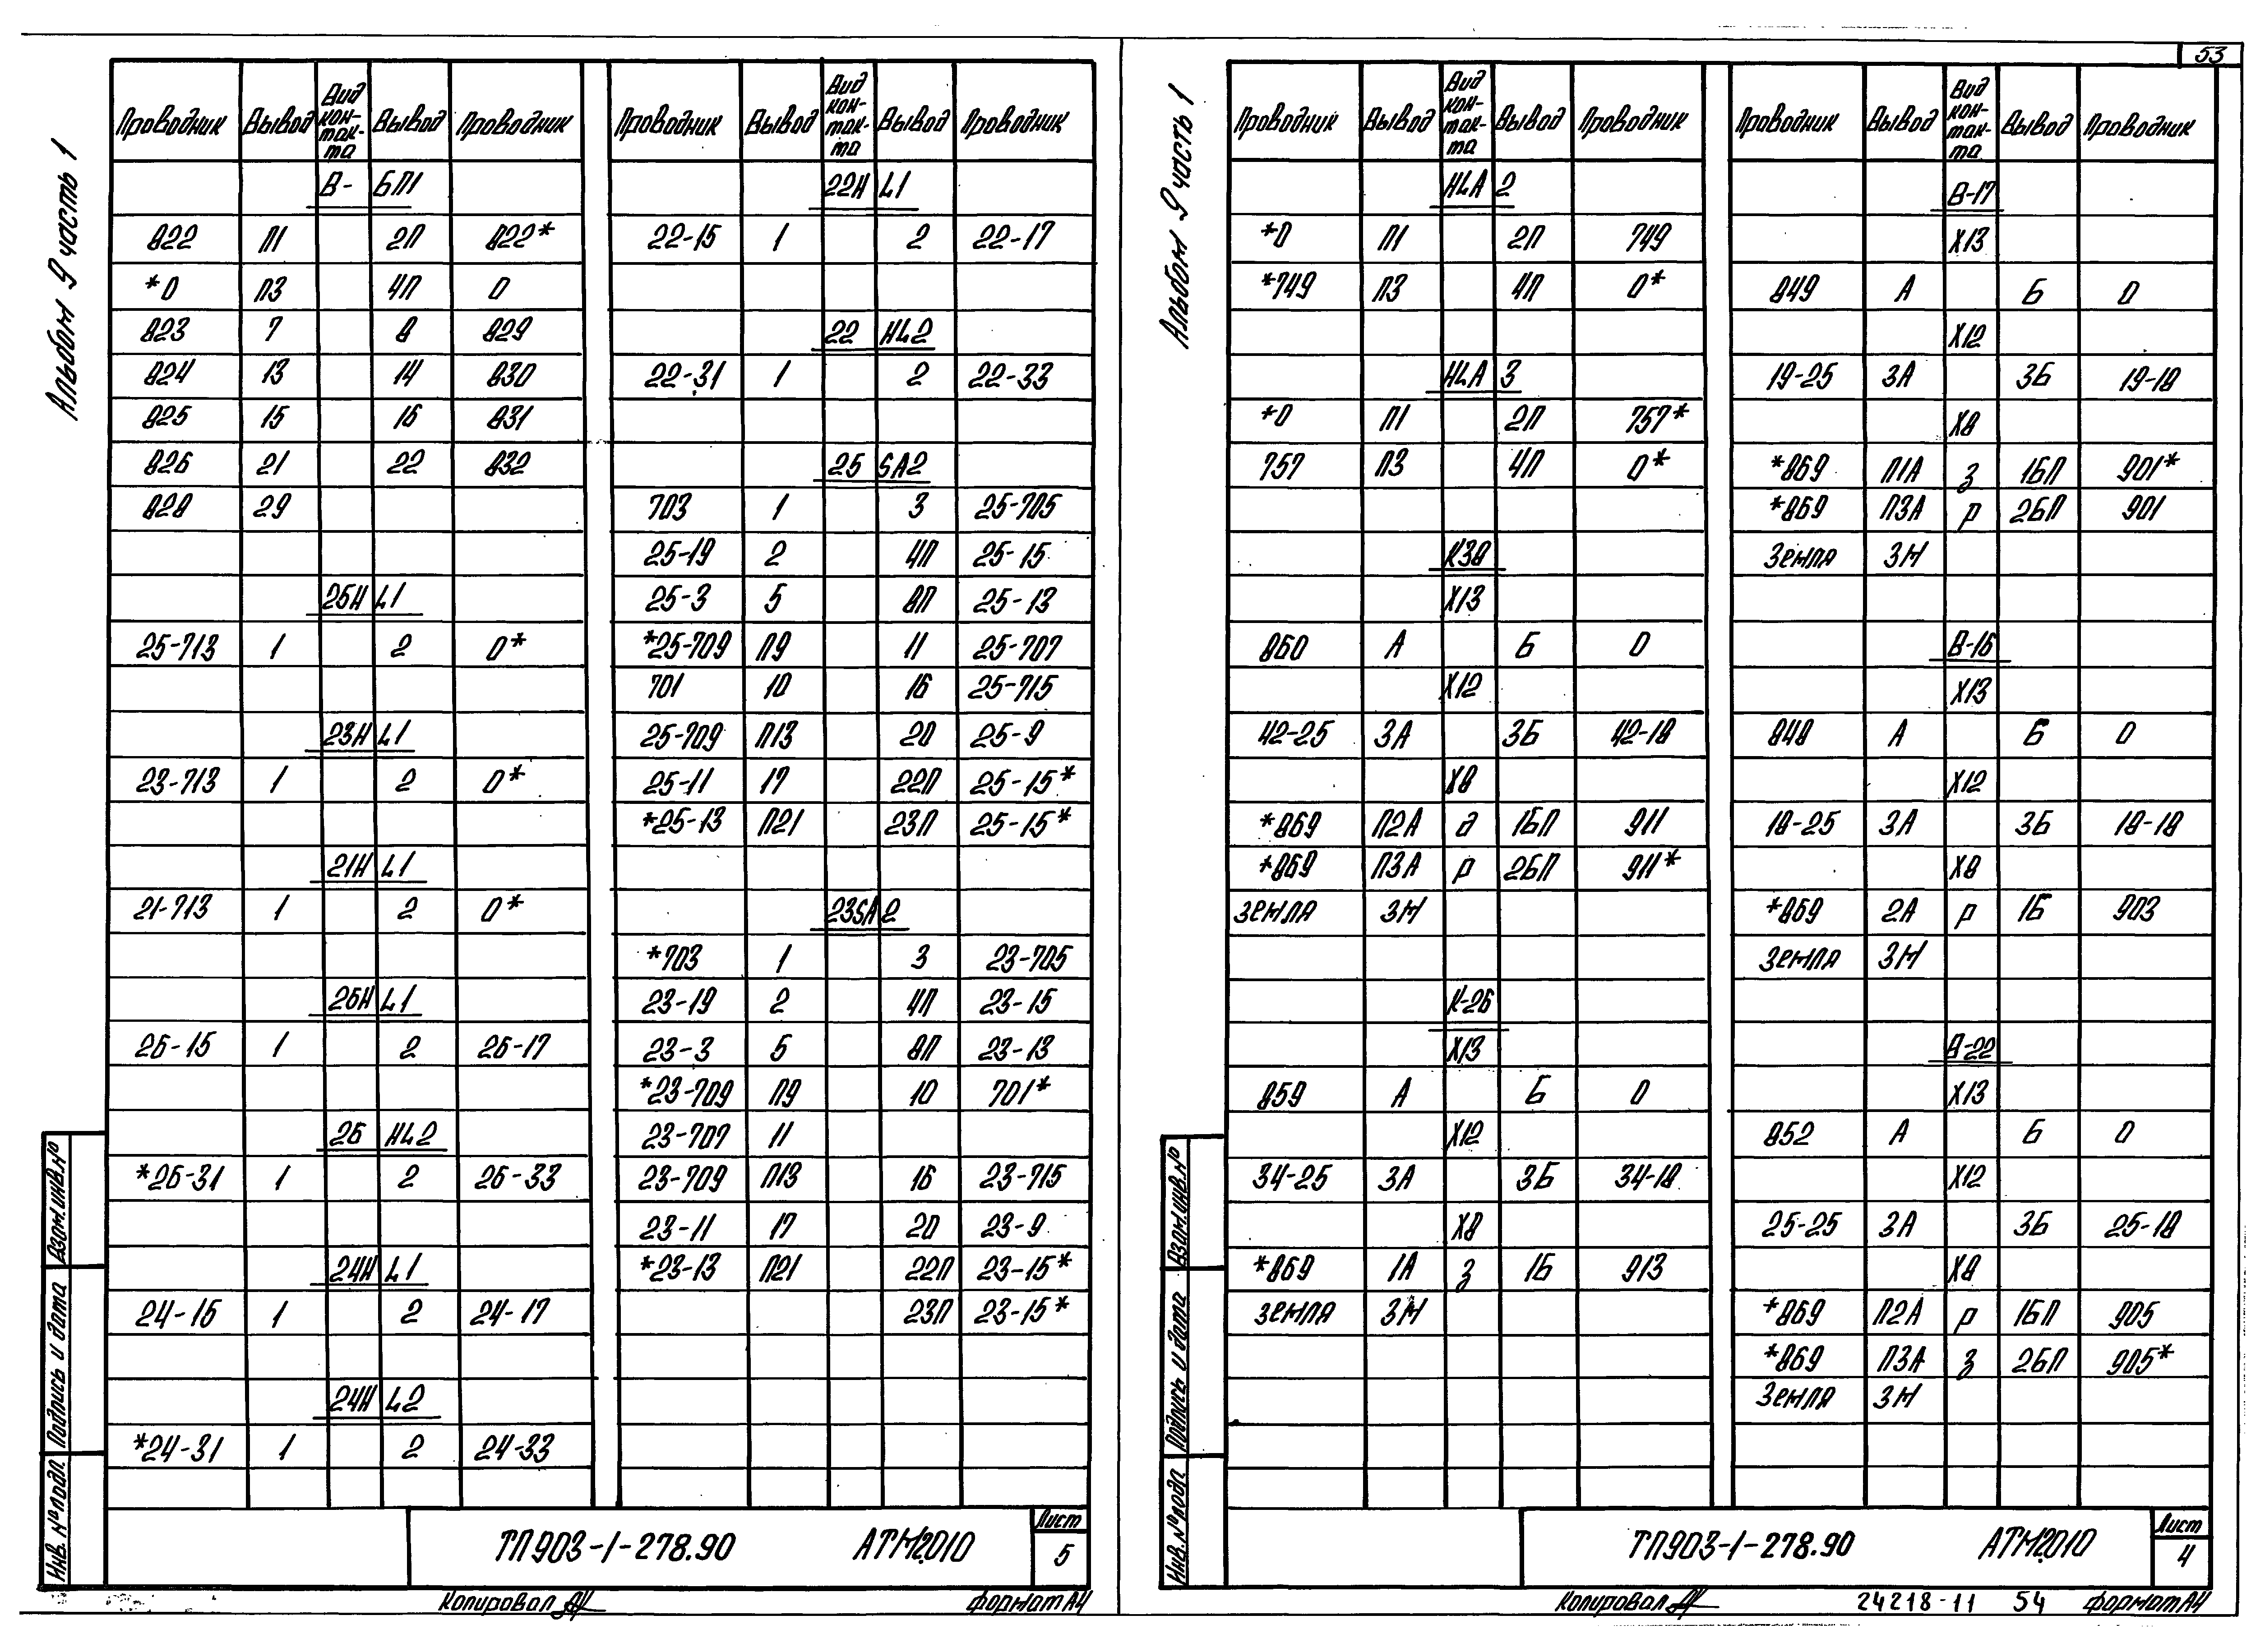 53
Альбом 9 часть 1
Проводник Вывод Вид контакта Вывод Проводник
В- БП1
822 П1 2П 822*
*0 П3 4П 0
823 7 8 829
824 13 14 830
825 15 16 831
826 21 22 832
828 29
25HL1
25-713 1 2 0*
23HL1
23-713 1 2 0*
21HL1
21-713 1 2 0*
26HL1
26-15 1 2 26-17
26 HL2
*26-31 1 2 26-33
24HL1
24-15 1 2 24-17
24HL2
*24-31 1 2 24-33
Проводник Вывод Вид контакта Вывод Проводник
22HL1
22-15 1 2 22-17
22 HL2
22-31 1 2 22-33
25 SA2
703 1 3 25-705
25-19 2 4П 25-15
25-3 5 8П 25-13
*25-709 П9 11 25-707
701 10 16 25-715
25-709 П13 20 25-9
25-11 17 22П 25-15*
*25-13 П21 23П 25-15*
23SA2
*703 1 3 23-705
23-19 2 4П 23-15
23-3 5 8П 23-13
*23-709 П9 10 701*
23-707 11
23-709 П13 16 23-715
23-11 17 20 23-9
*23-13 П21 22П 23-15*
23П 23-15*
Взам.инв.№
Подпись и дата
Инв. № подл.
ТП903-1-278.90 АТМ2.010
Лист
5
Копировал
формат А4
Альбом 9 часть 1
Проводник Вывод Вид контакта Вывод Проводник
HLA 2
*0 П1 2П 749
*749 П3 4П 0*
HLA 3
*0 П1 2П 757*
757 П3 4П 0*
К38
Х13
860 А Б 0
Х12
42-25 3А 3Б 42-18
Х8
*869 П2А д 1БП 911
*869 П3А р 2БП 911*
Земля ЗМ
К-26
Х13
859 А Б 0
Х12
34-25 3А 3Б 34-18
Х8
*869 1А з 1Б 913
Земля ЗМ
Проводник Вывод Вид контакта Вывод Проводник
В-17
Х13
849 А Б 0
Х12
19-25 3А 3Б 19-18
Х8
*869 П1А з 1БП 901*
*869 П3А р 2БП 901
Земля ЗМ
В-16
Х13
848 А Б 0
Х12
18-25 3А 3Б 18-18
Х8
*869 2А р 1Б 903
Земля ЗМ
В-22
Х13
852 А Б 0
Х12
25-25 3А 3Б 25-18
Х8
*869 П2А р 1БП 905
*869 П3А з 2БП 905*
Земля ЗМ
Взам.инв.№
Подпись и дата
Инв. № подл.
ТП903-1-278.90 АТМ2.010
Лист
4
Копировал
24218-11 54 формат А4